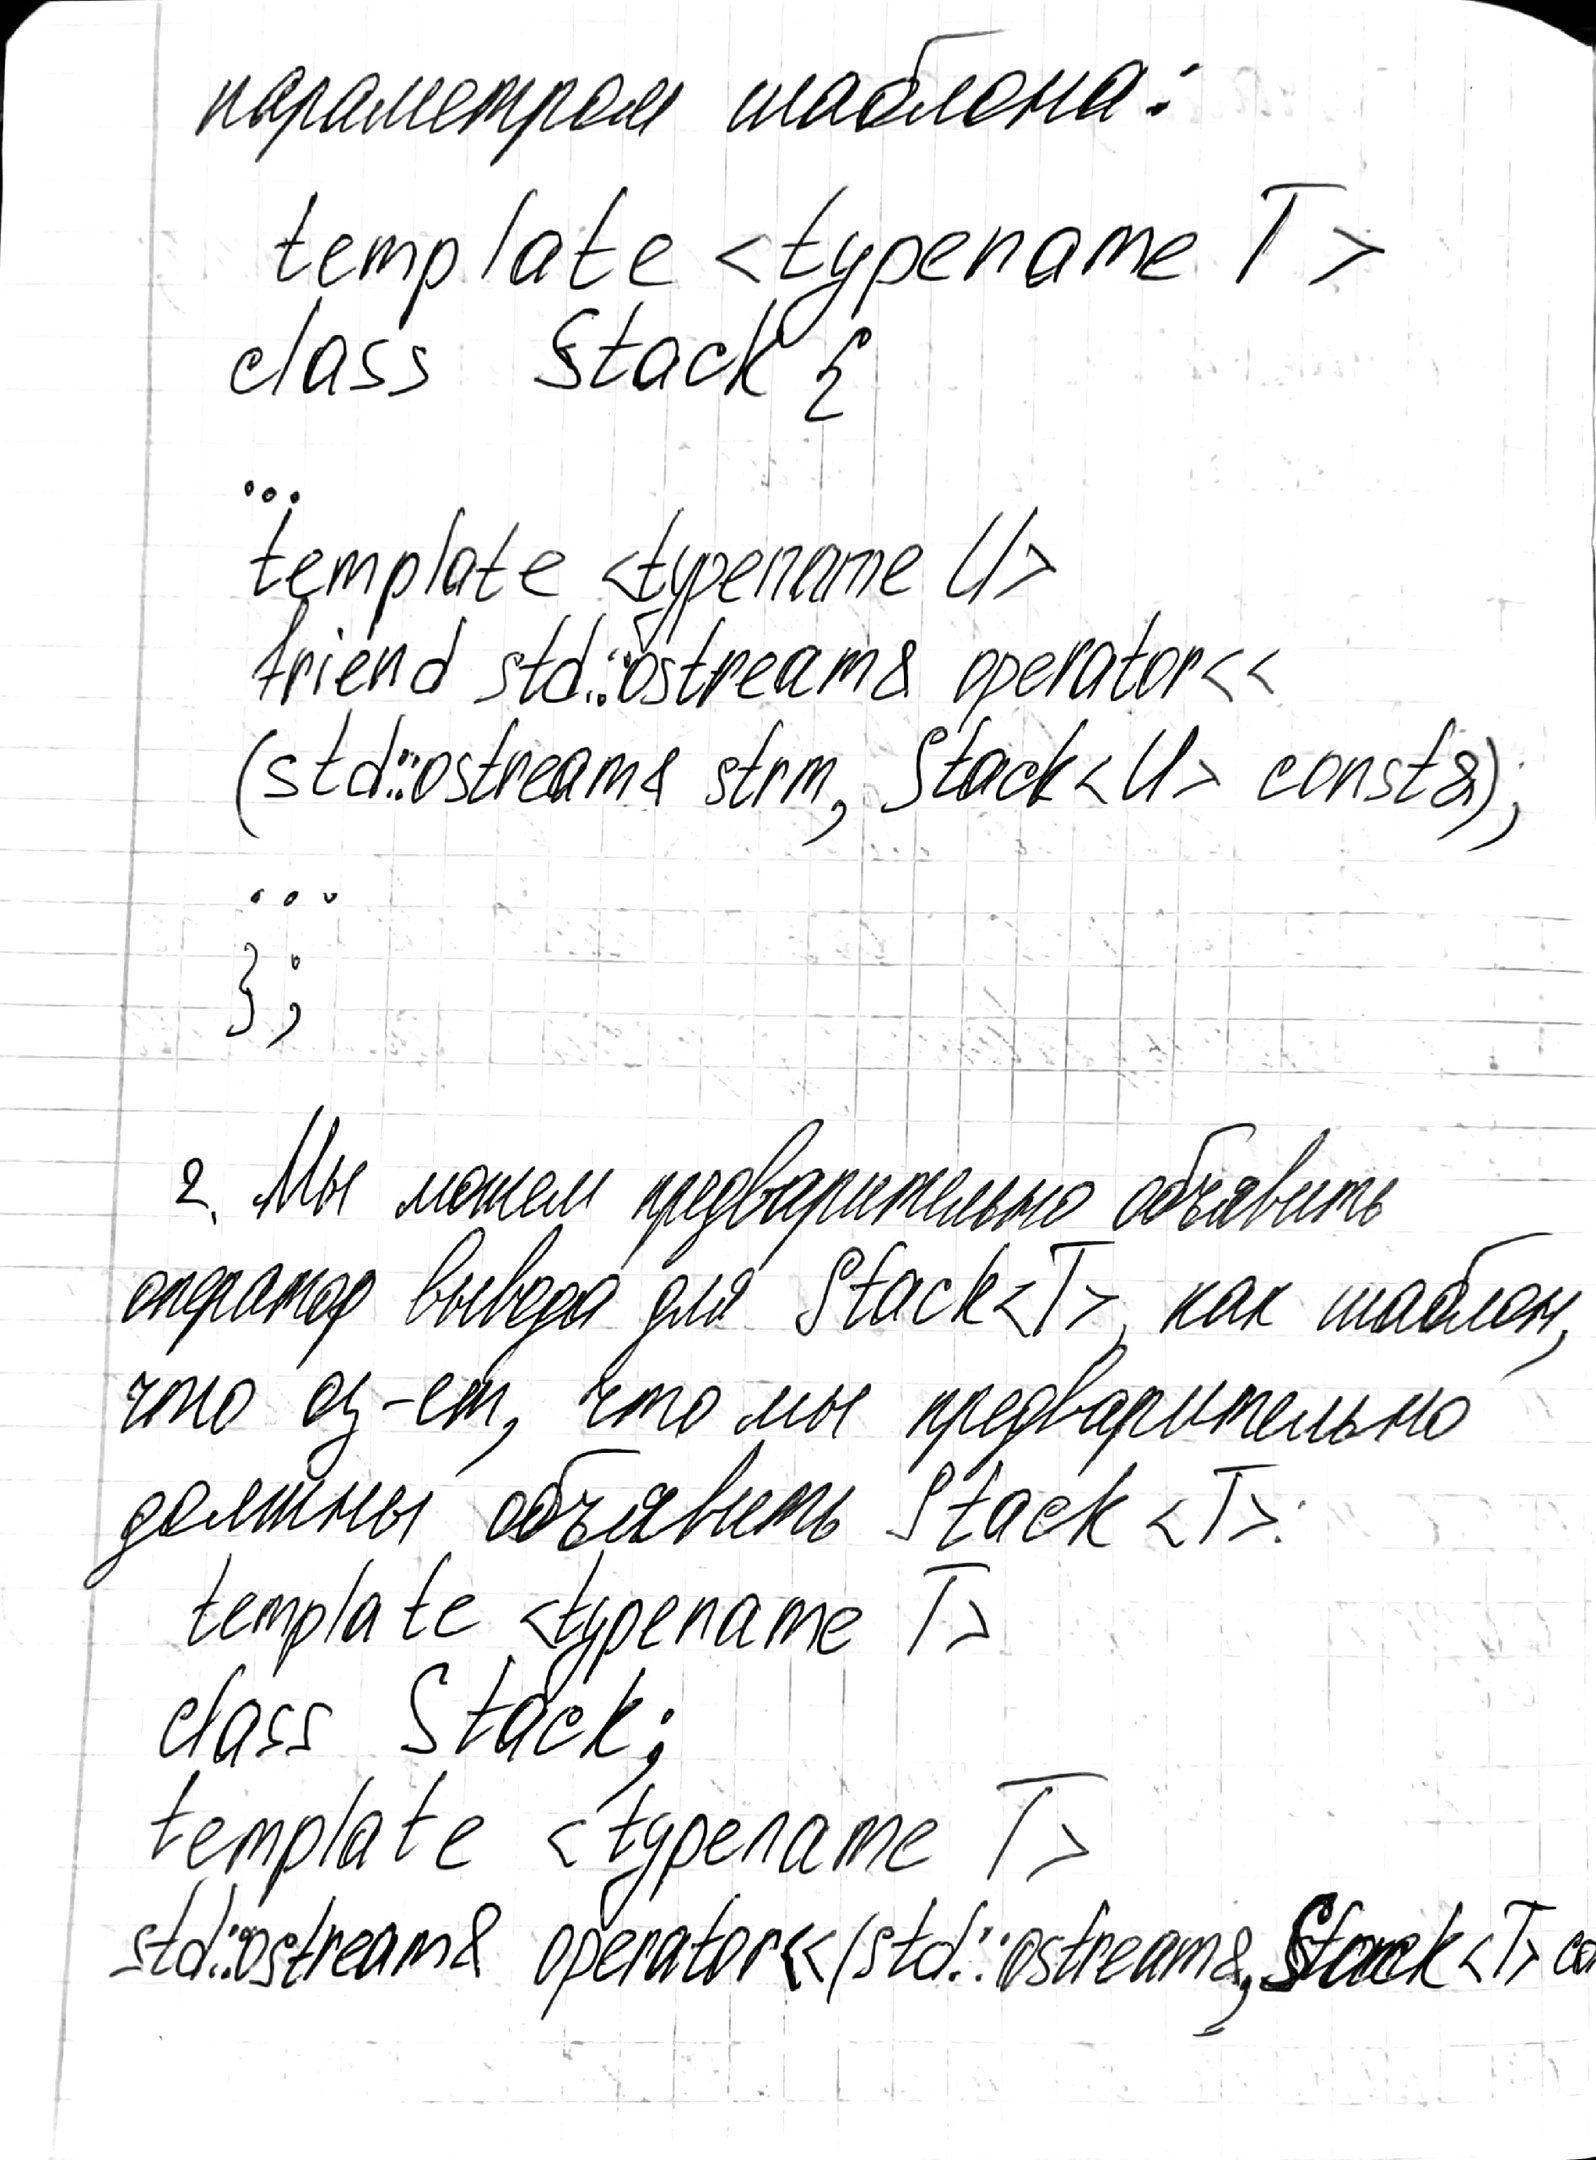 параметром шаблона:
template <typename T>
class Stack {
...
template <typename U>
friend std::ostream& operator<<
(std::ostream& strm, Stack<U> const&);
...
};
2. Мы можем предварительно объявить
оператор вывода для Stack<T>, как шаблон,
что оз-ет, что мы предварительно
должны объявить Stack <T>:
template <typename T>
class Stack;
template <typename T>
std::ostream& operator<<(std::ostream&, Stack<T> co